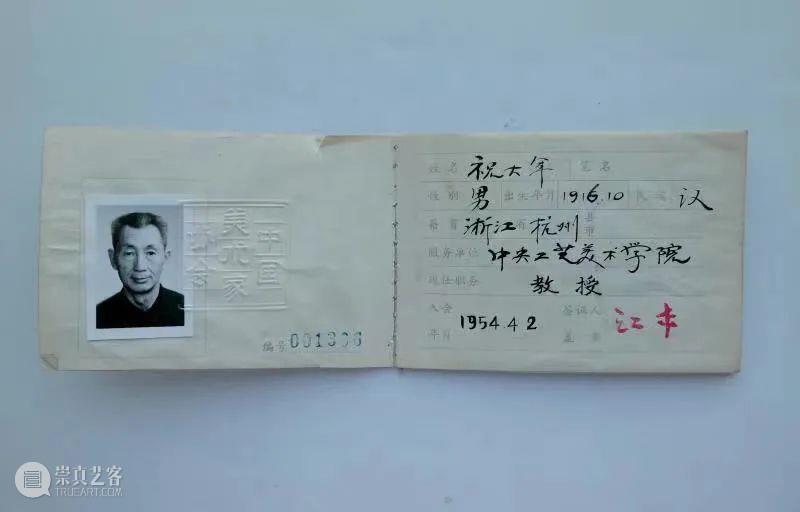 中国
美术家
协会
编号
姓名 祝大年 笔名
性别 男 出生年月 1916.10 民族 汉
籍贯 浙江 省 杭州 县市
服务单位 中央工艺美术学院
现任职务 教授
入会 1954.4.2 签证人 江丰
年月 盖章
崇真艺客
TRUEART.COM